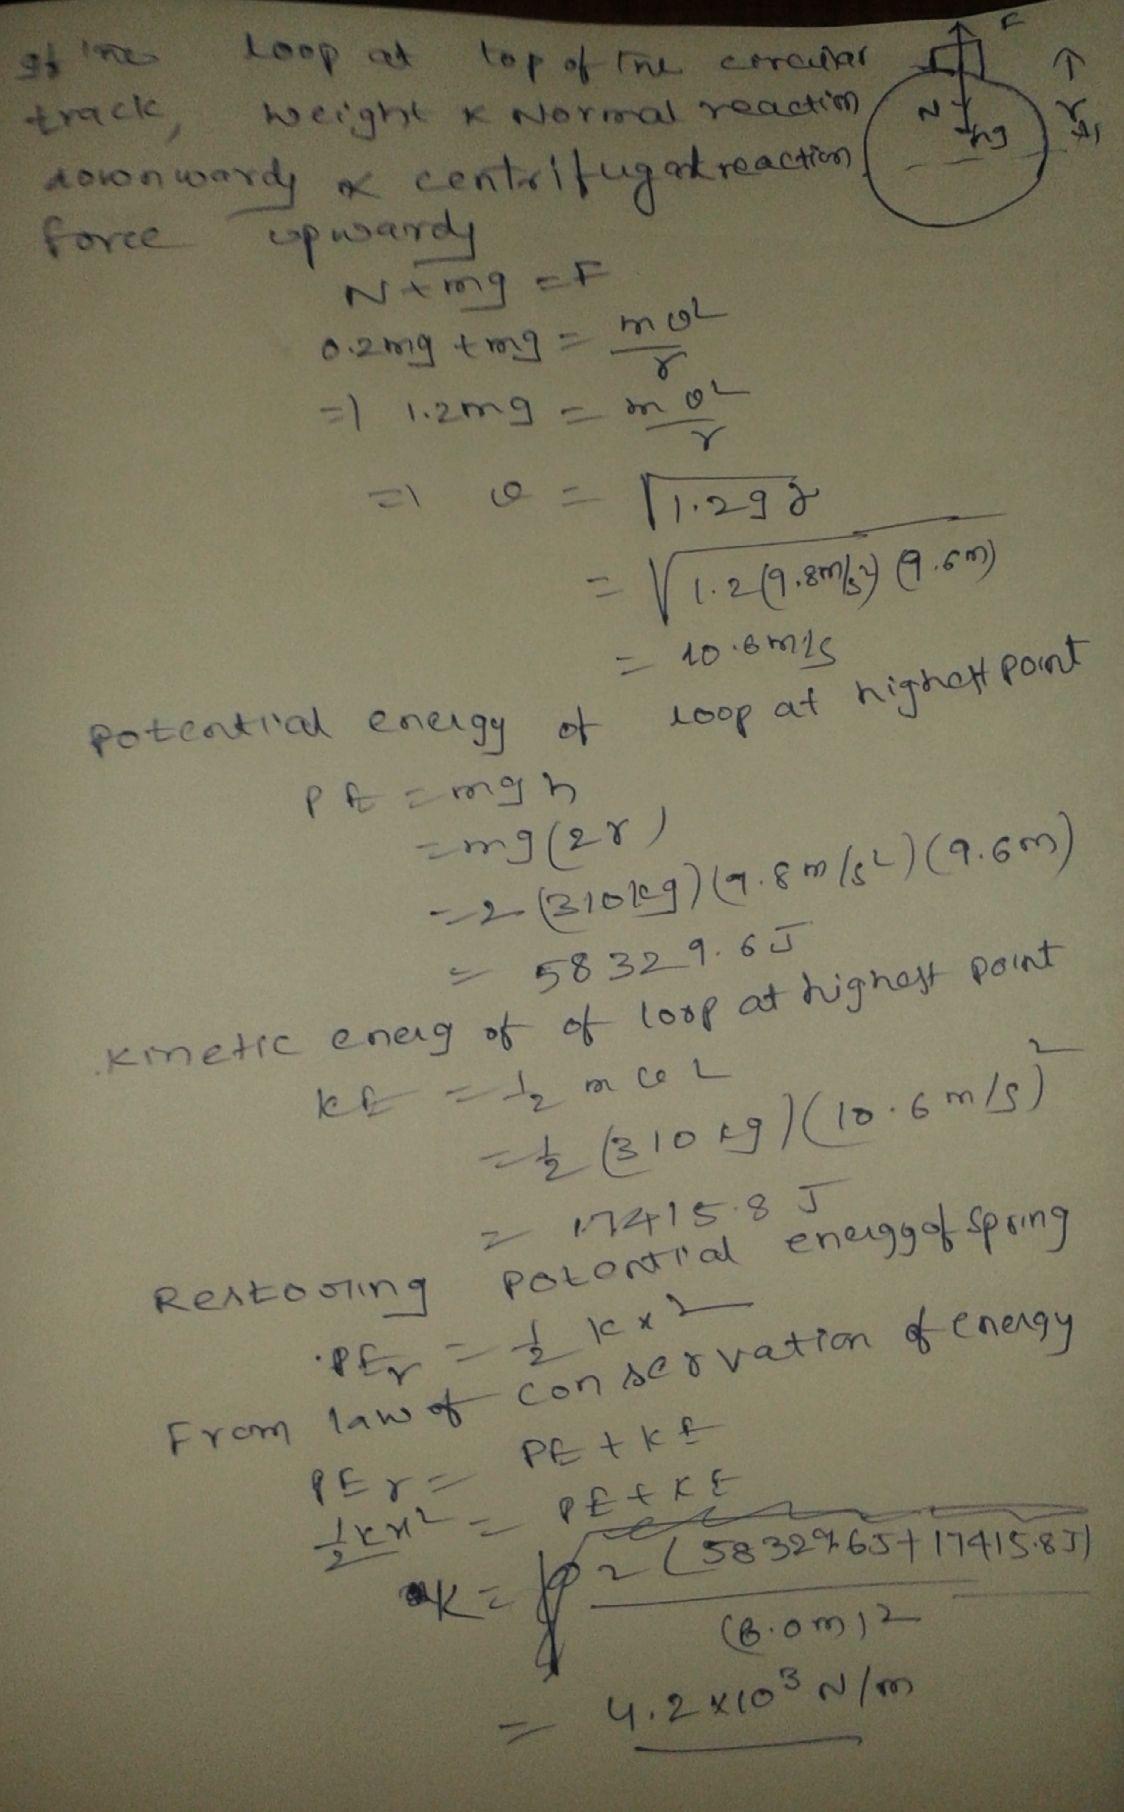 loop at top of the circular
track, weight & Normal reaction
downwards & centrifugal reaction
force upwards
F
N
mg
r
N + mg = F
0.2mg + mg = mv²/r
=) 1.2mg = mv²/r
=) v = √1.2gr
= √1.2(9.8m/s²)(9.6m)
= 10.6m/s
Potential energy of loop at highest point
PE = mgh
= mg(2r)
= 2(310kg)(9.8m/s²)(9.6m)
= 58329.6J
Kinetic energ of of loop at highest point
KE = ½ mv²
= ½ (310kg)(10.6m/s)²
= 17415.8 J
Restooring Potential energy of spring
PEr = ½ kx²
From law of conservation of energy
PEr = PE + KE
½kx² = PE + KE
K = 2(58329.6J + 17415.8J)
(6.0m)²
= 4.2×10³ N/m